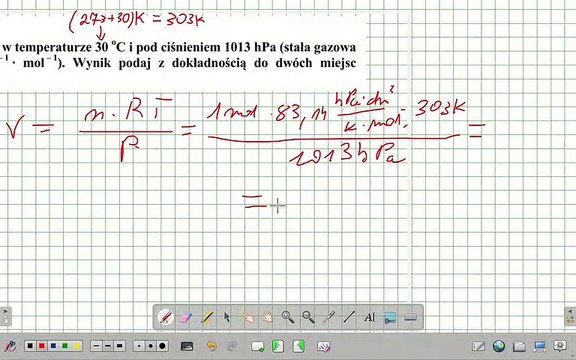 (273+30)K = 303K
w temperaturze 30 °C i pod ciśnieniem 1013 hPa (stała gazowa
⁻¹ · mol⁻¹). Wynik podaj z dokładnością do dwóch miejsc
V = n · R T / P = 1 mol · 83,14 hPa · dm³ / K · mol · 303K / 1013 hPa =
=